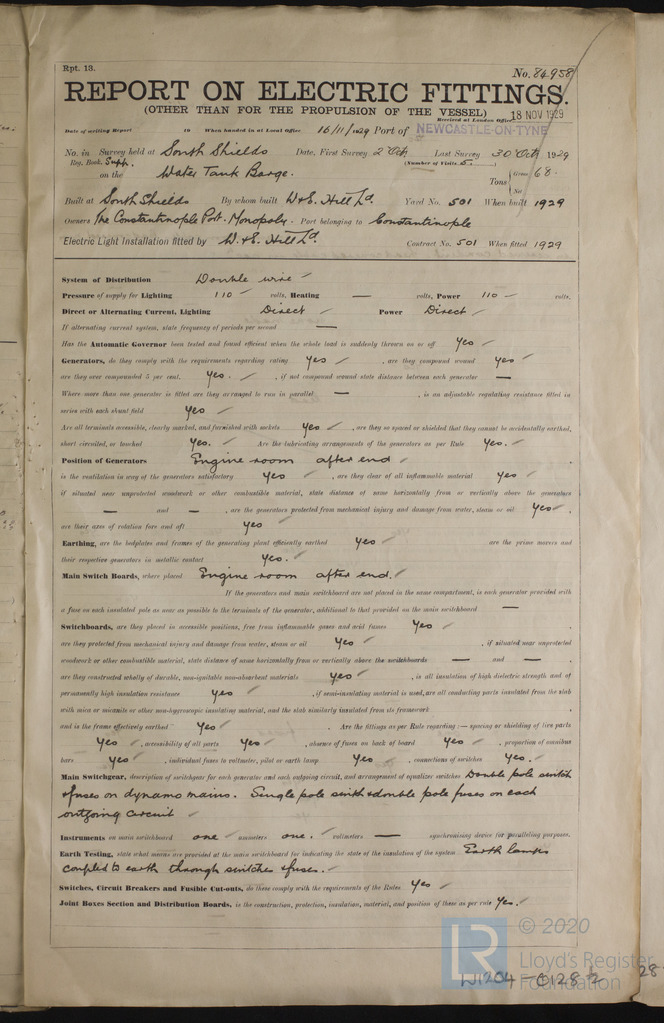 Rpt. 13.
No. 84958
REPORT ON ELECTRIC FITTINGS.
(OTHER THAN FOR THE PROPULSION OF THE VESSEL)
Received at London Office 18 NOV 1929
Date of writing Report 19 When handed in at Local Office 16/11/1929 Port of NEWCASTLE-ON-TYNE
No. in Survey held at South Shields Date, First Survey 2 Oct Last Survey 30 Oct 1929
Reg. Book. Supp. (Number of Visits 5)
on the Water Tank Barge. Tons Gross 68.
Net
Built at South Shields By whom built W & E. Hill Ld. Yard No. 501 When built 1929
Owners The Constantinople Port. Monopoly. Port belonging to Constantinople
Electric Light Installation fitted by W. & E. Hill Ld. Contract No. 501 When fitted 1929
System of Distribution Double wire ✓
Pressure of supply for Lighting 110 ✓ volts, Heating — volts, Power 110 ✓ volts.
Direct or Alternating Current, Lighting Direct ✓ Power Direct ✓
If alternating current system, state frequency of periods per second —
Has the Automatic Governor been tested and found efficient when the whole load is suddenly thrown on or off Yes ✓
Generators, do they comply with the requirements regarding rating Yes ✓ , are they compound wound Yes ✓
are they over compounded 5 per cent. Yes. ✓ , if not compound wound state distance between each generator —
Where more than one generator is fitted are they arranged to run in parallel — , is an adjustable regulating resistance fitted in
series with each shunt field Yes ✓
Are all terminals accessible, clearly marked, and furnished with sockets Yes ✓ , are they so spaced or shielded that they cannot be accidentally earthed,
short circuited, or touched Yes. ✓ Are the lubricating arrangements of the generators as per Rule Yes. ✓
Position of Generators Engine room after end ✓
is the ventilation in way of the generators satisfactory Yes ✓ , are they clear of all inflammable material Yes ✓
if situated near unprotected woodwork or other combustible material, state distance of same horizontally from or vertically above the generators
— and — , are the generators protected from mechanical injury and damage from water, steam or oil Yes ✓ ,
are their axes of rotation fore and aft Yes ✓
Earthing, are the bedplates and frames of the generating plant efficiently earthed Yes ✓ are the prime movers and
their respective generators in metallic contact Yes. ✓
Main Switch Boards, where placed Engine room after end. ✓
If the generators and main switchboard are not placed in the same compartment, is each generator provided with
a fuse on each insulated pole as near as possible to the terminals of the generator, additional to that provided on the main switchboard —
Switchboards, are they placed in accessible positions, free from inflammable gases and acid fumes Yes ✓
are they protected from mechanical injury and damage from water, steam or oil Yes ✓ , if situated near unprotected
woodwork or other combustible material, state distance of same horizontally from or vertically above the switchboards — and —
are they constructed wholly of durable, non-ignitable non-absorbent materials Yes ✓ , is all insulation of high dielectric strength and of
permanently high insulation resistance Yes ✓ , if semi-insulating material is used, are all conducting parts insulated from the slab
with mica or micanite or other non-hygroscopic insulating material, and the slab similarly insulated from its framework .
and is the frame effectively earthed Yes ✓ . Are the fittings as per Rule regarding :— spacing or shielding of live parts
Yes ✓ , accessibility of all parts Yes ✓ , absence of fuses on back of board Yes ✓ , proportion of omnibus
bars Yes ✓ , individual fuses to voltmeter, pilot or earth lamp Yes , connections of switches Yes. ✓
Main Switchgear, description of switchgear for each generator and each outgoing circuit, and arrangement of equalizer switches Double pole switch
& fuses on dynamo mains. Single pole switch & double pole fuses on each
outgoing circuit ✓
Instruments on main switchboard one ✓ ammeters one. ✓ voltmeters — synchronising device for paralleling purposes.
Earth Testing, state what means are provided at the main switchboard for indicating the state of the insulation of the system Earth lamps
coupled to earth through switches & fuses. ✓
Switches, Circuit Breakers and Fusible Cut-outs, do these comply with the requirements of the Rules Yes ✓
Joint Boxes Section and Distribution Boards, is the construction, protection, insulation, material, and position of these as per rule Yes. ✓
© 2020
LR
Lloyd's Register
Foundation
W1204-0128 1/2
28